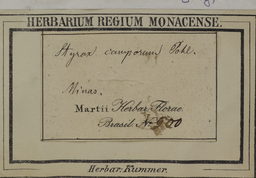 HERBARIUM REGIUM MONACENSE.
Styrax camporum Pohl.
Minas.
Martii Herbar. Florae
Brasil. No
Herbar. Kummer.